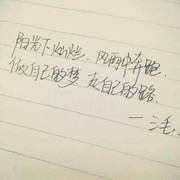 阳光下灿烂，风雨中奔跑，
做自己的梦，走自己的路。
—三毛